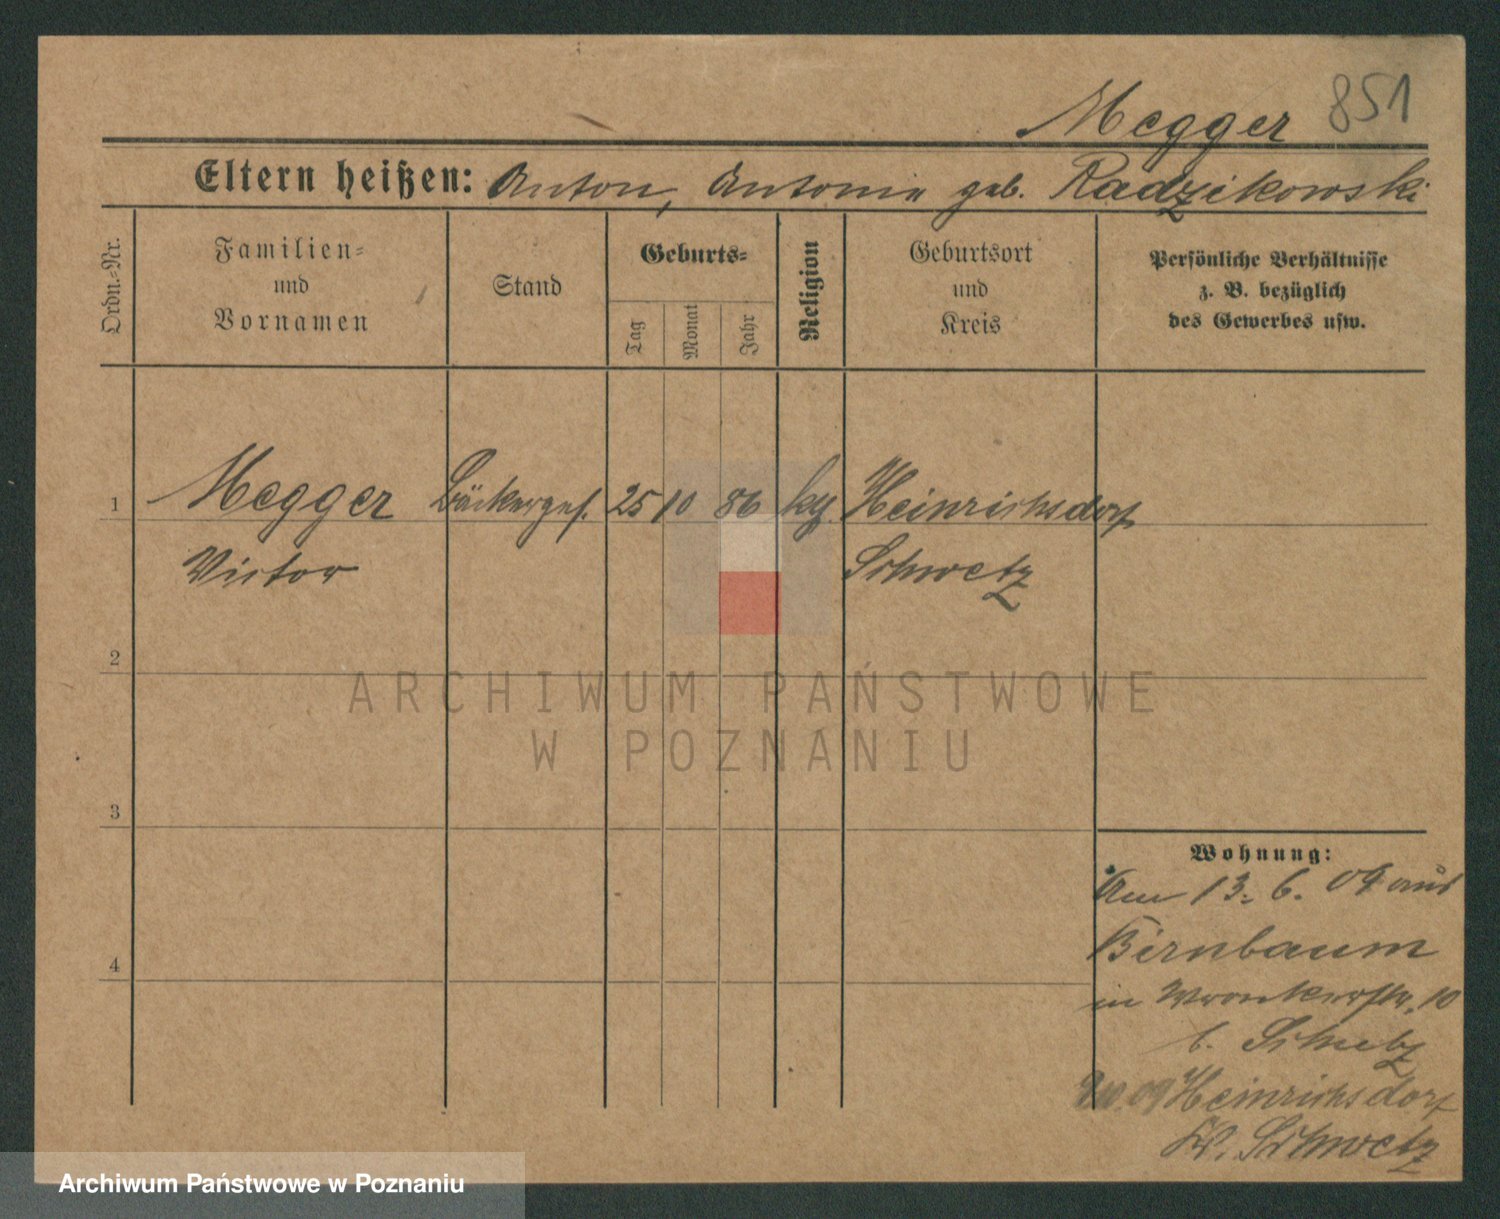 Megger 851
Eltern heißen: Anton, Antonie geb. Radzikowski
Ordn.-Nr.
Familien-
und
Vornamen
Stand
Geburts-
Tag
Monat
Jahr
Religion
Geburtsort
und
Kreis
Persönliche Verhältnisse
z. B. bezüglich
des Gewerbes usw.
1 Megger Bäckerges. 25 10 86 Heinrichsdorf
Victor Schwetz
2
3
4
Wohnung:
Am 13. 6. 09 aus
Birnbaum
in Wronkerstr. 10
b.
Heinrichsdorf
Kr. Schwetz
ARCHIWUM PAŃSTWOWE
W POZNANIU
Archiwum Państwowe w Poznaniu